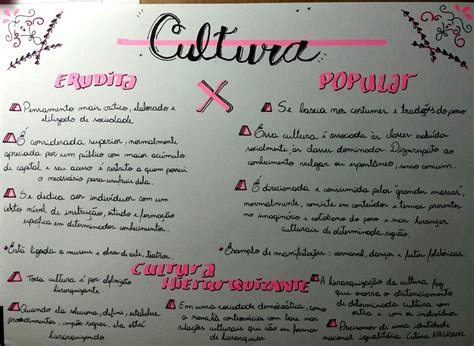 Cultura
ERUDITA
X
POPULAR
Pensamento mais crítico, elaborado e
elitizado de sociedade
É considerada superior, normalmente
apreciada por um público com maior acúmulo
de capital e seu acesso é restrito a quem possui
o necessário para usufruir dela.
Se dedica aos indivíduos com um
certo nível de instrução, estudo e formação
específica em determinados conhecimentos.
•Está ligada a museus e obras de arte, teatros.
Se baseia nos costumes e tradições do povo
Essa cultura é associada às classes excluídas
socialmente, às classes dominadas.
conhecimento vulgar ou espontâneo, senso comum.
É direcionada e consumida pelas "grandes massas",
normalmente, consiste em conteúdos e temas presentes
no imaginário e cotidiano do povo e nas heranças
culturais de determinada região.
•Exemplo de manifestações: carnaval, danças e festas folclóricas.
CULTURA
HIERARQUIZANTE
Toda cultura é por definição
hierarquizante
Quando ela seleciona, define, estabelece
procedimentos, impõe regras, ela está
hierarquizando.
Em uma sociedade democrática, como
a nossa há controvérsias com base nas
relações culturais que são em formas
de hierarquias
A hierarquização da cultura faz
que ocorra o distanciamento
de determinada cultura com
outra e com os indivíduos
Precisamos de uma identidade
nacional igualitária Cultura NACIONAL